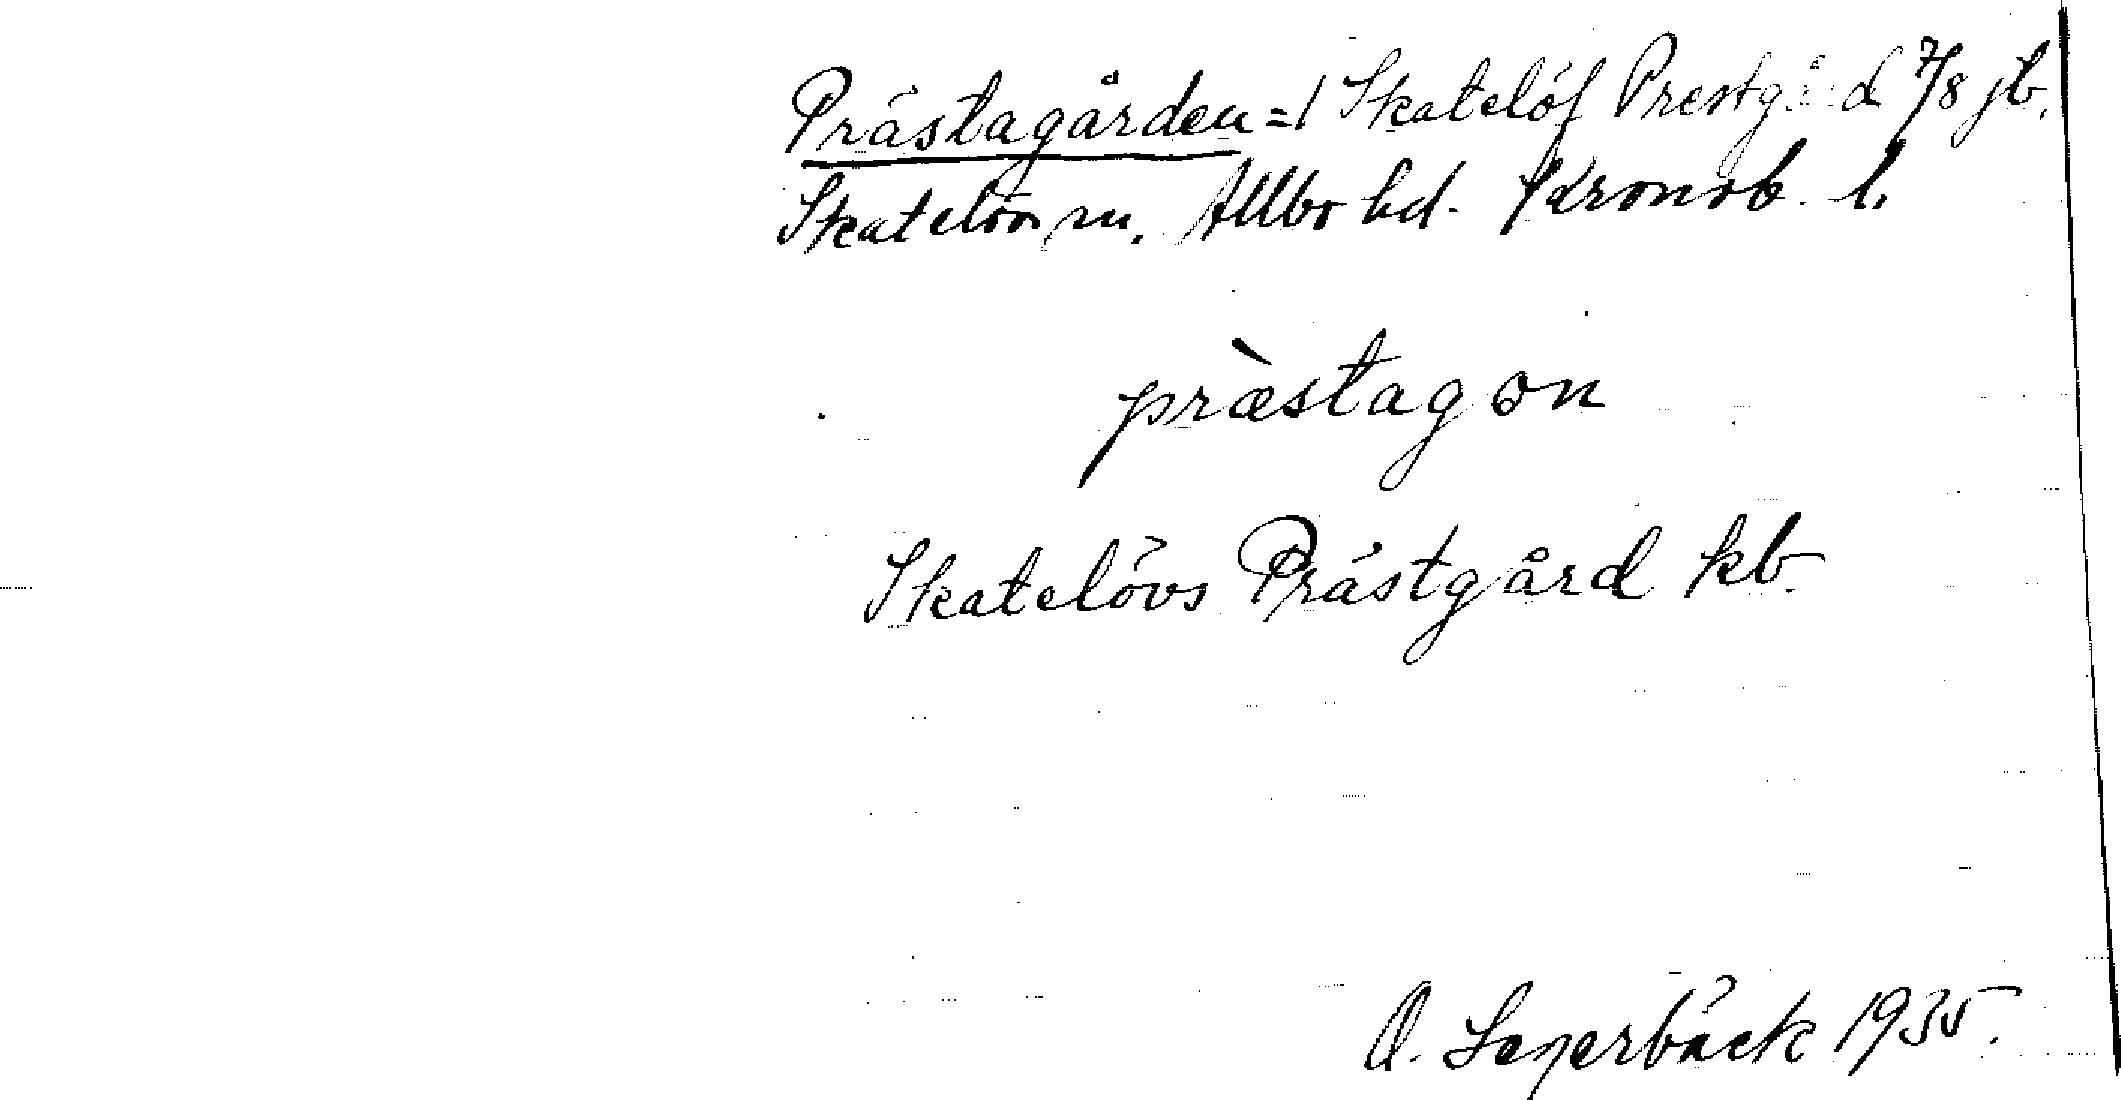 Prästagården = 1 Skatelöf Prestgård 7/8 jb.
Skatelövs sn. Allbo hd. Kronob. l.
præ̀stagɔn
Skatelövs Prästgård kb.
O. Segerbäck 1935.